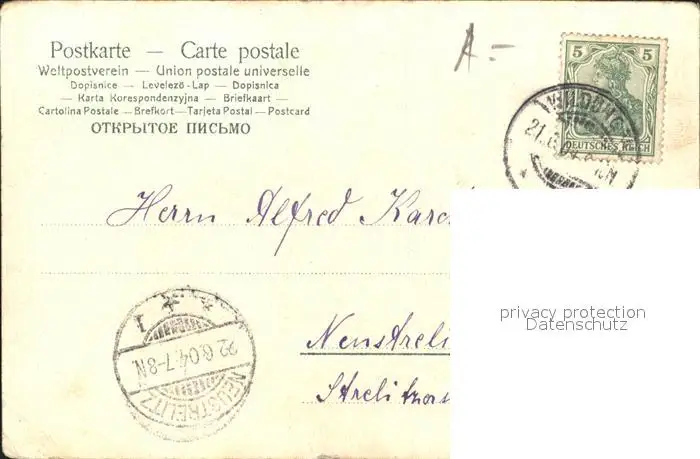 Postkarte — Carte postale
Weltpostverein — Union postale universelle
Dopisnice — Levelező-Lap — Dopisnica
— Karta Korespondenzyjna — Briefkaart —
Cartolina Postale — Brefkort — Tarjeta Postal — Postcard
ОТКРЫТОЕ ПИСЬМО
A.-
5 5
DEUTSCHES REICH
21.6.04
Herrn Alfred
privacy protection
Datenschutz
I
22.6.04.7-8N.
NEUSTRELITZ
Neustreli